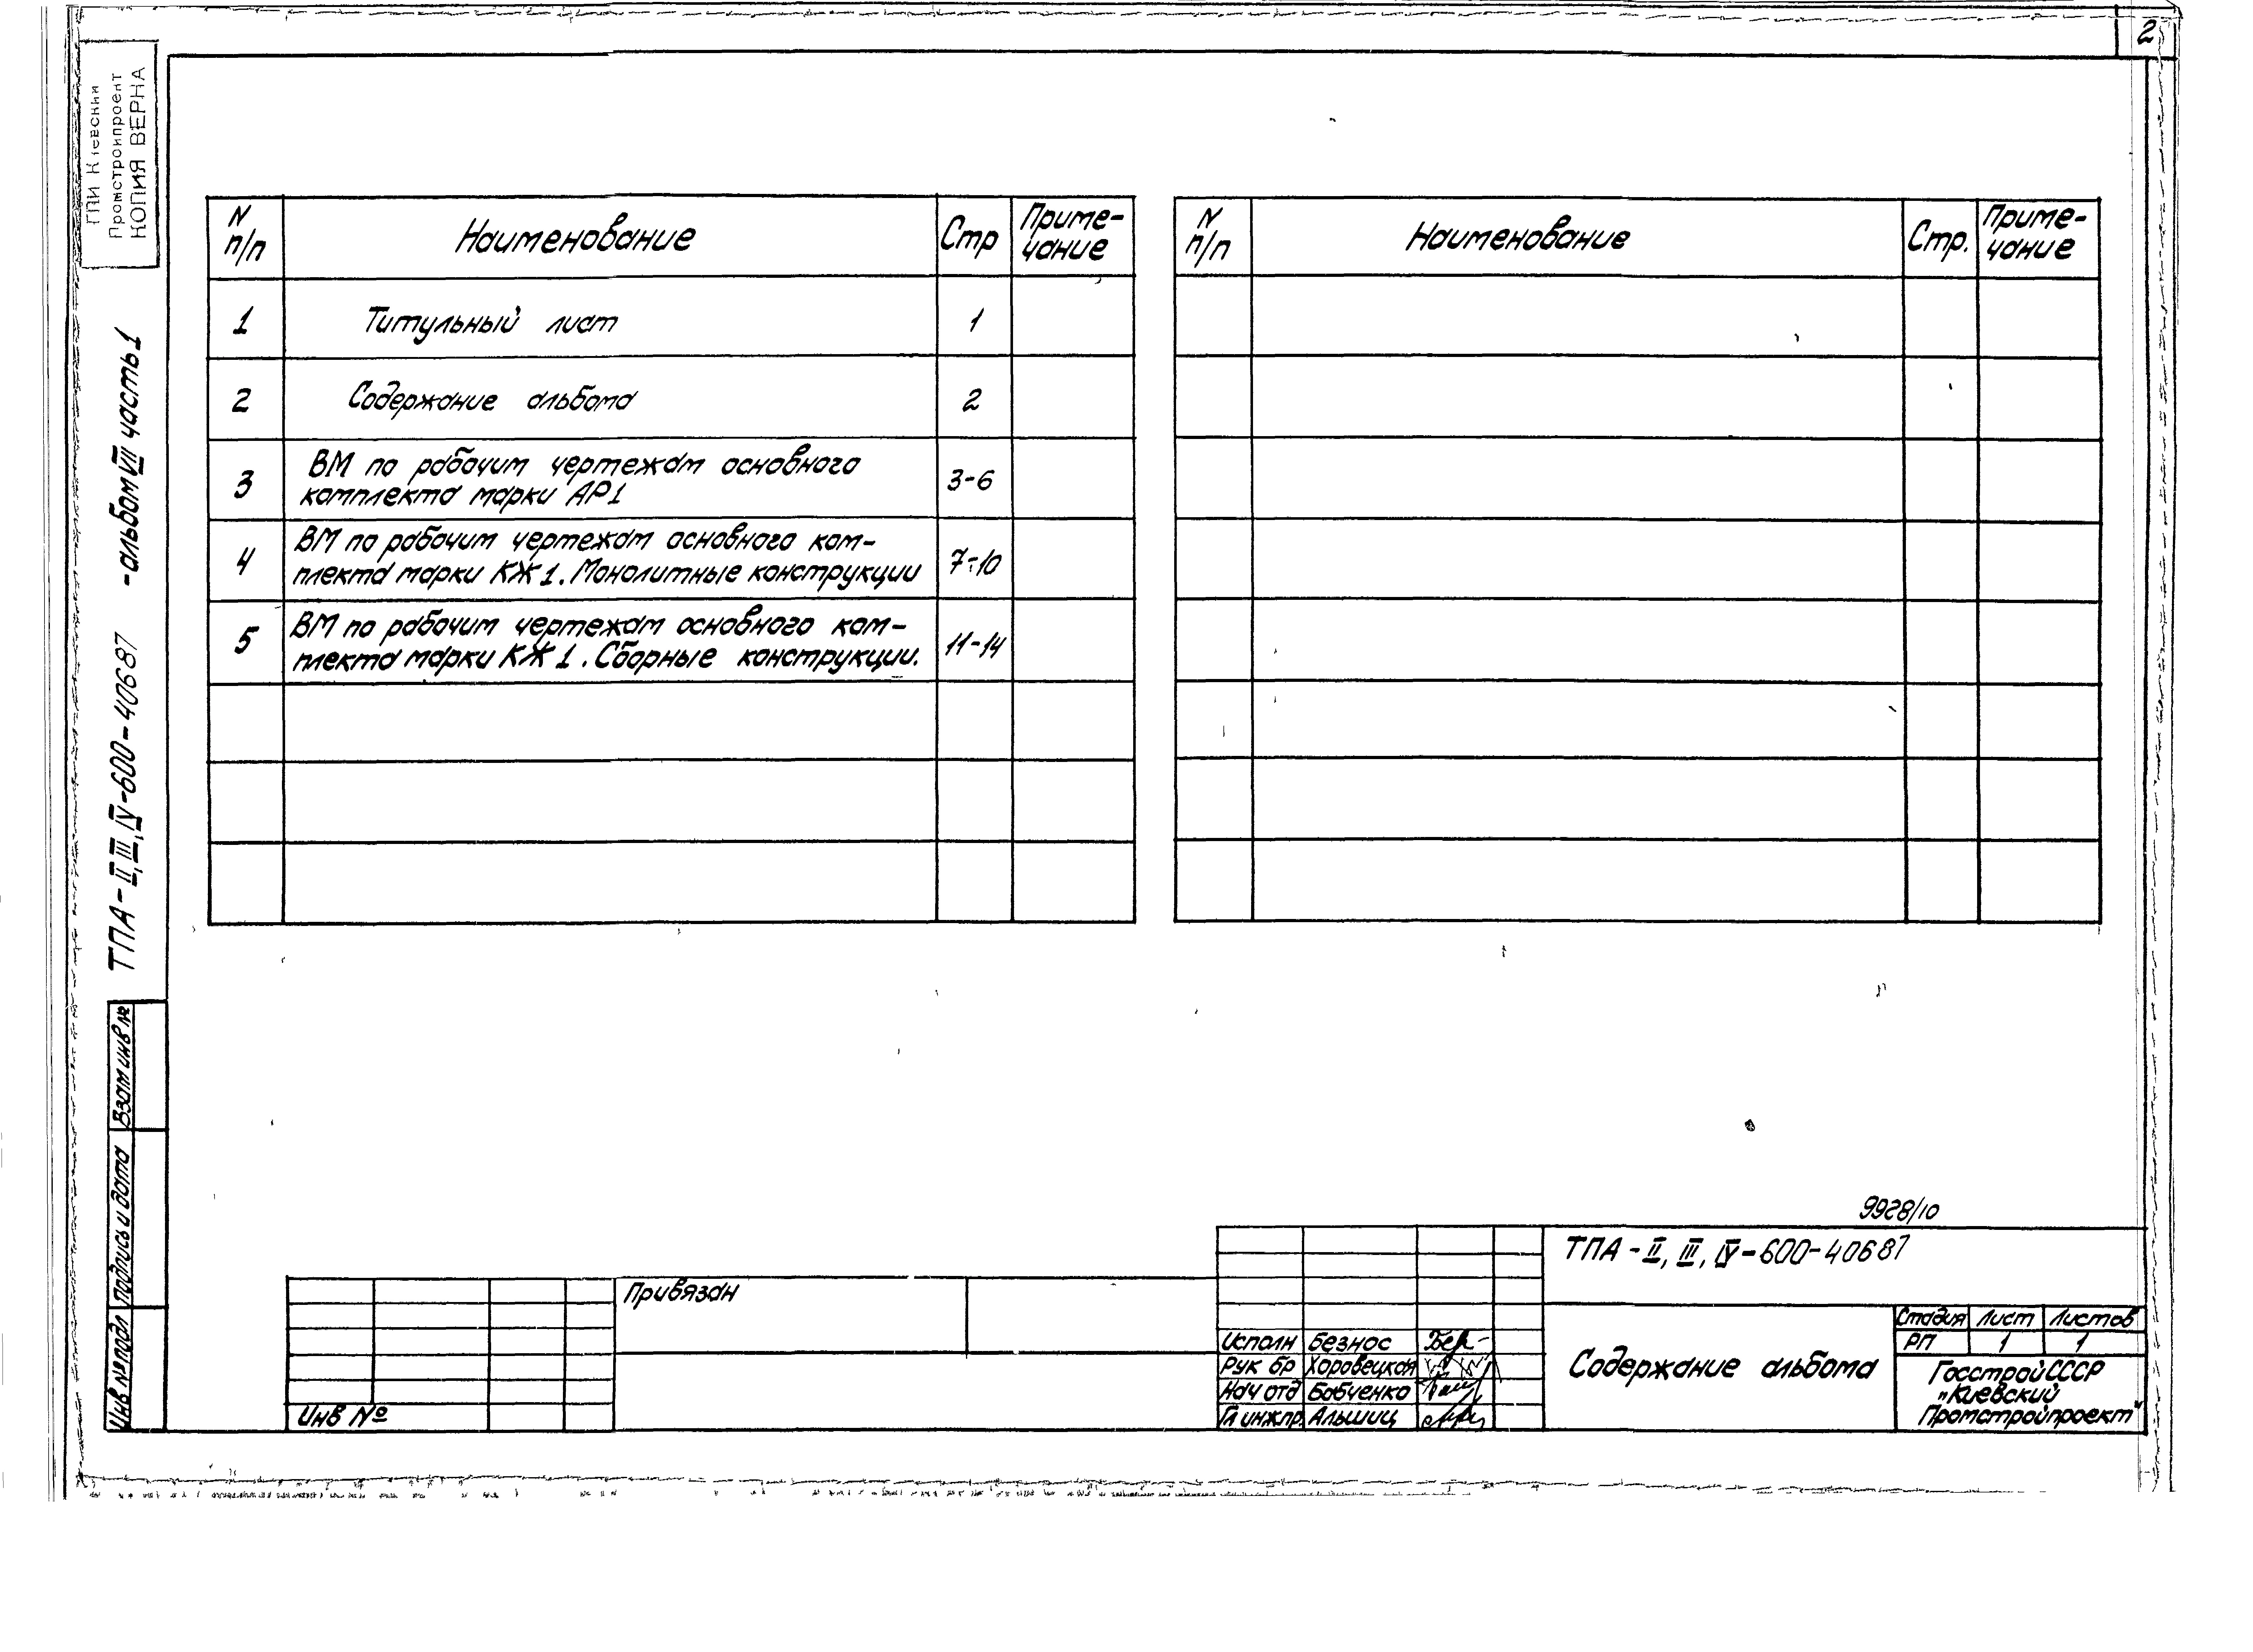 2
ГПИ Киевский
Промстройпроект
КОПИЯ ВЕРНА
ТПА-II,III,IV-600-406 87 -альбом VII часть 1
Взам инв №
Подпись и дата
Инв № подл
N п/п
Наименование
Стр
Приме-
чание
1
Титульный лист
1
2
Содержание альбома
2
3
ВМ по рабочим чертежам основного
комплекта марки АР1
3-6
4
ВМ по рабочим чертежам основного ком-
плекта марки КЖ1. Монолитные конструкции
7-10
5
ВМ по рабочим чертежам основного ком-
плекта марки КЖ1. Сборные конструкции.
11-14
N п/п
Наименование
Стр.
Приме-
чание
9928/10
ТПА-II, III, IV-600-406 87
Привязан
Инв №
Исполн Безнос
Рук бр Хоровецкая
Нач отд Бабченко
Гл инжпр. Альшиц
Содержание альбома
Стадия Лист Листов
РП 1 1
Госстрой СССР
„Киевский
Промстройпроект"